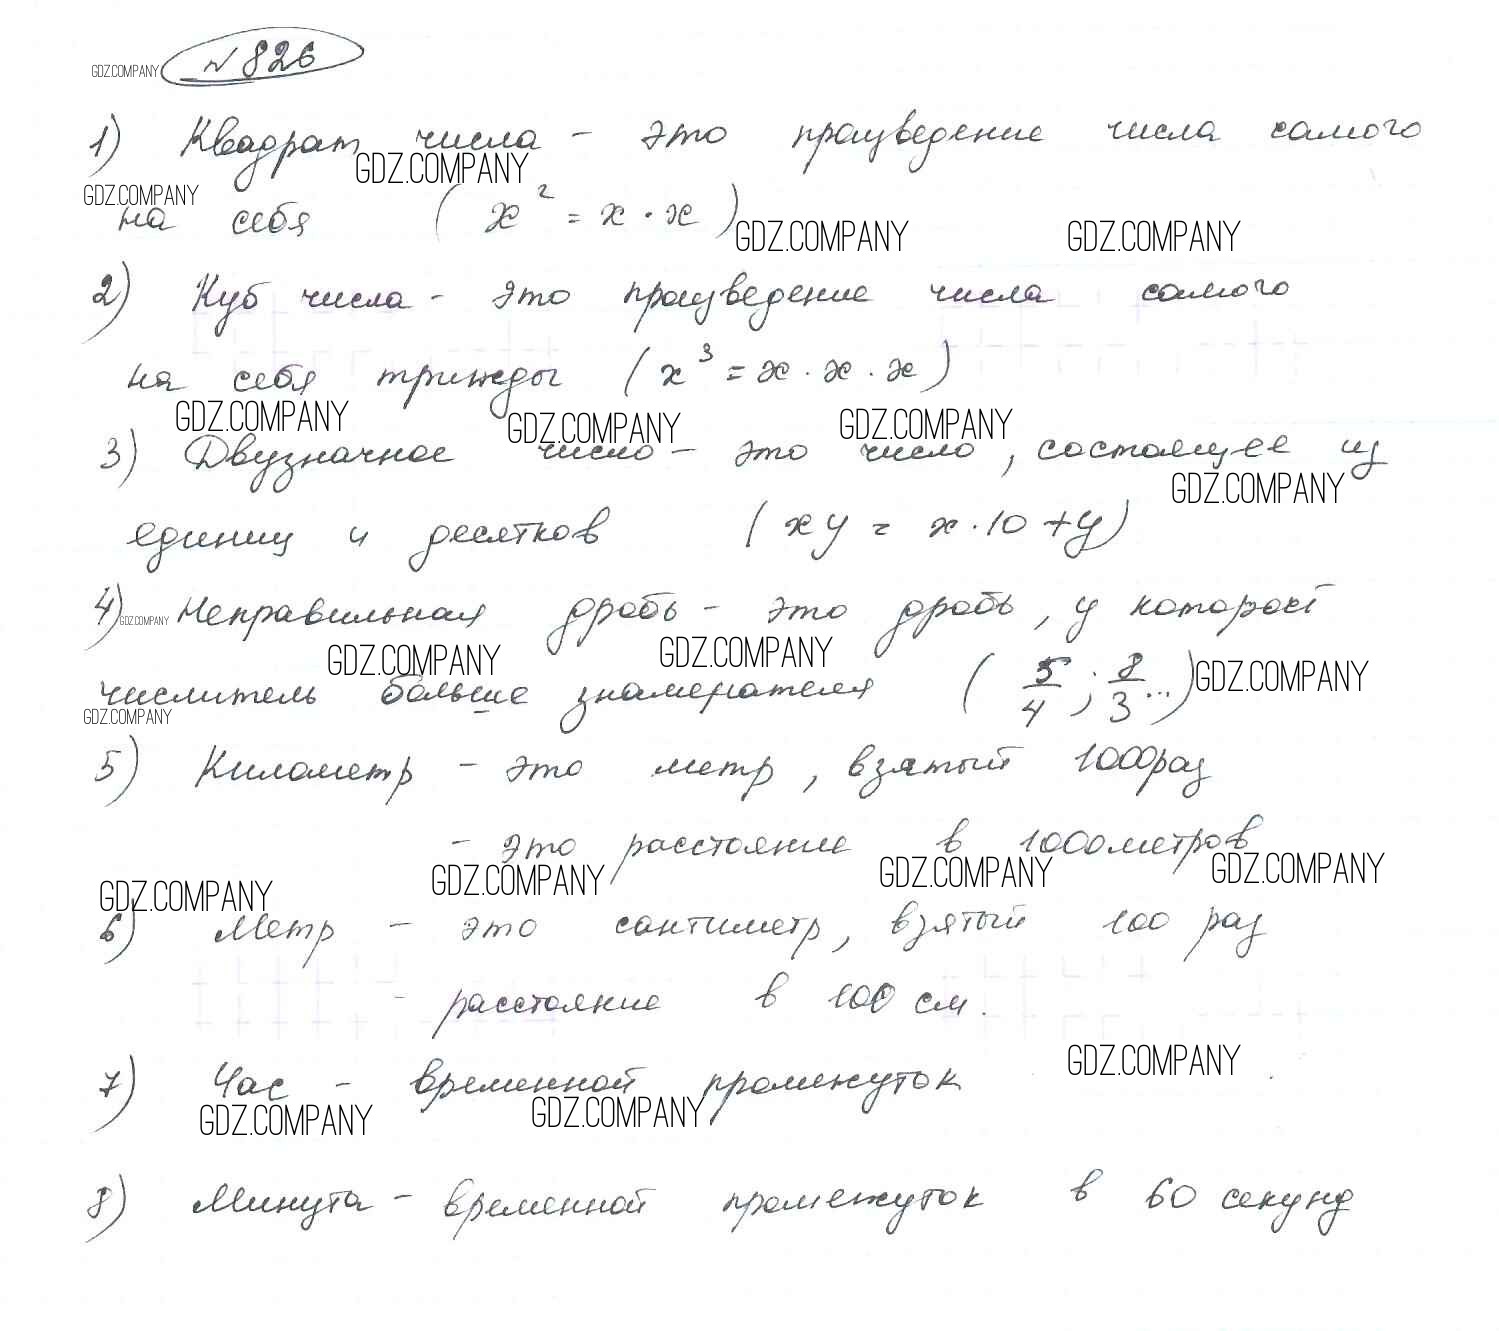 № 826
GDZ.COMPANY
1) Квадрат числа - это произведение числа самого
GDZ.COMPANY
GDZ.COMPANY
на себя (x² = x · x)
GDZ.COMPANY GDZ.COMPANY
2) Куб числа - это произведение числа самого
на себя трижды (x³ = x · x · x)
GDZ.COMPANY GDZ.COMPANY GDZ.COMPANY
3) Двузначное число - это число, состоящее из
GDZ.COMPANY
единиц и десятков (xy = x · 10 + y)
4) Неправильная дробь - это дробь, у которой
GDZ.COMPANY
GDZ.COMPANY GDZ.COMPANY GDZ.COMPANY
числитель больше знаменателя (5/4; 8/3...)
GDZ.COMPANY
5) Километр - это метр, взятый 1000 раз
- это расстояние в 1000 метров
GDZ.COMPANY GDZ.COMPANY GDZ.COMPANY GDZ.COMPANY
6) Метр - это сантиметр, взятый 100 раз
- расстояние в 100 см.
GDZ.COMPANY
7) Час - временной промежуток
GDZ.COMPANY GDZ.COMPANY
8) Минута - временной промежуток в 60 секунд